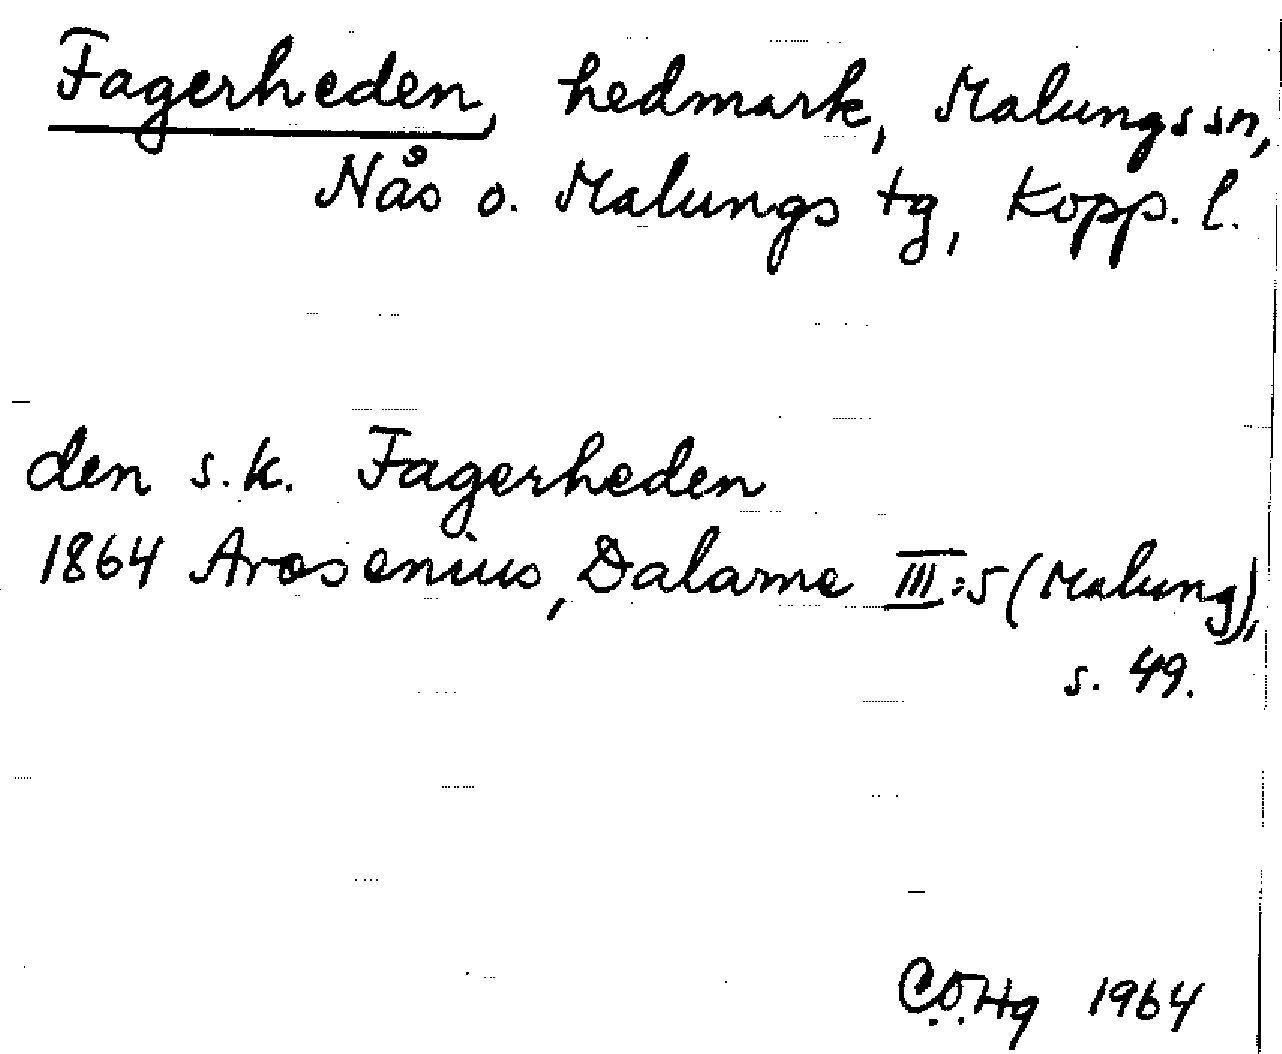 Fagerheden, hedmark, Malungs sn,
Nås o. Malungs tg, Kopp. l.
den s.k. Fagerheden
1864 Arosenius, Dalarne III:5 (Malung),
s. 49.
C.O.Hg 1964